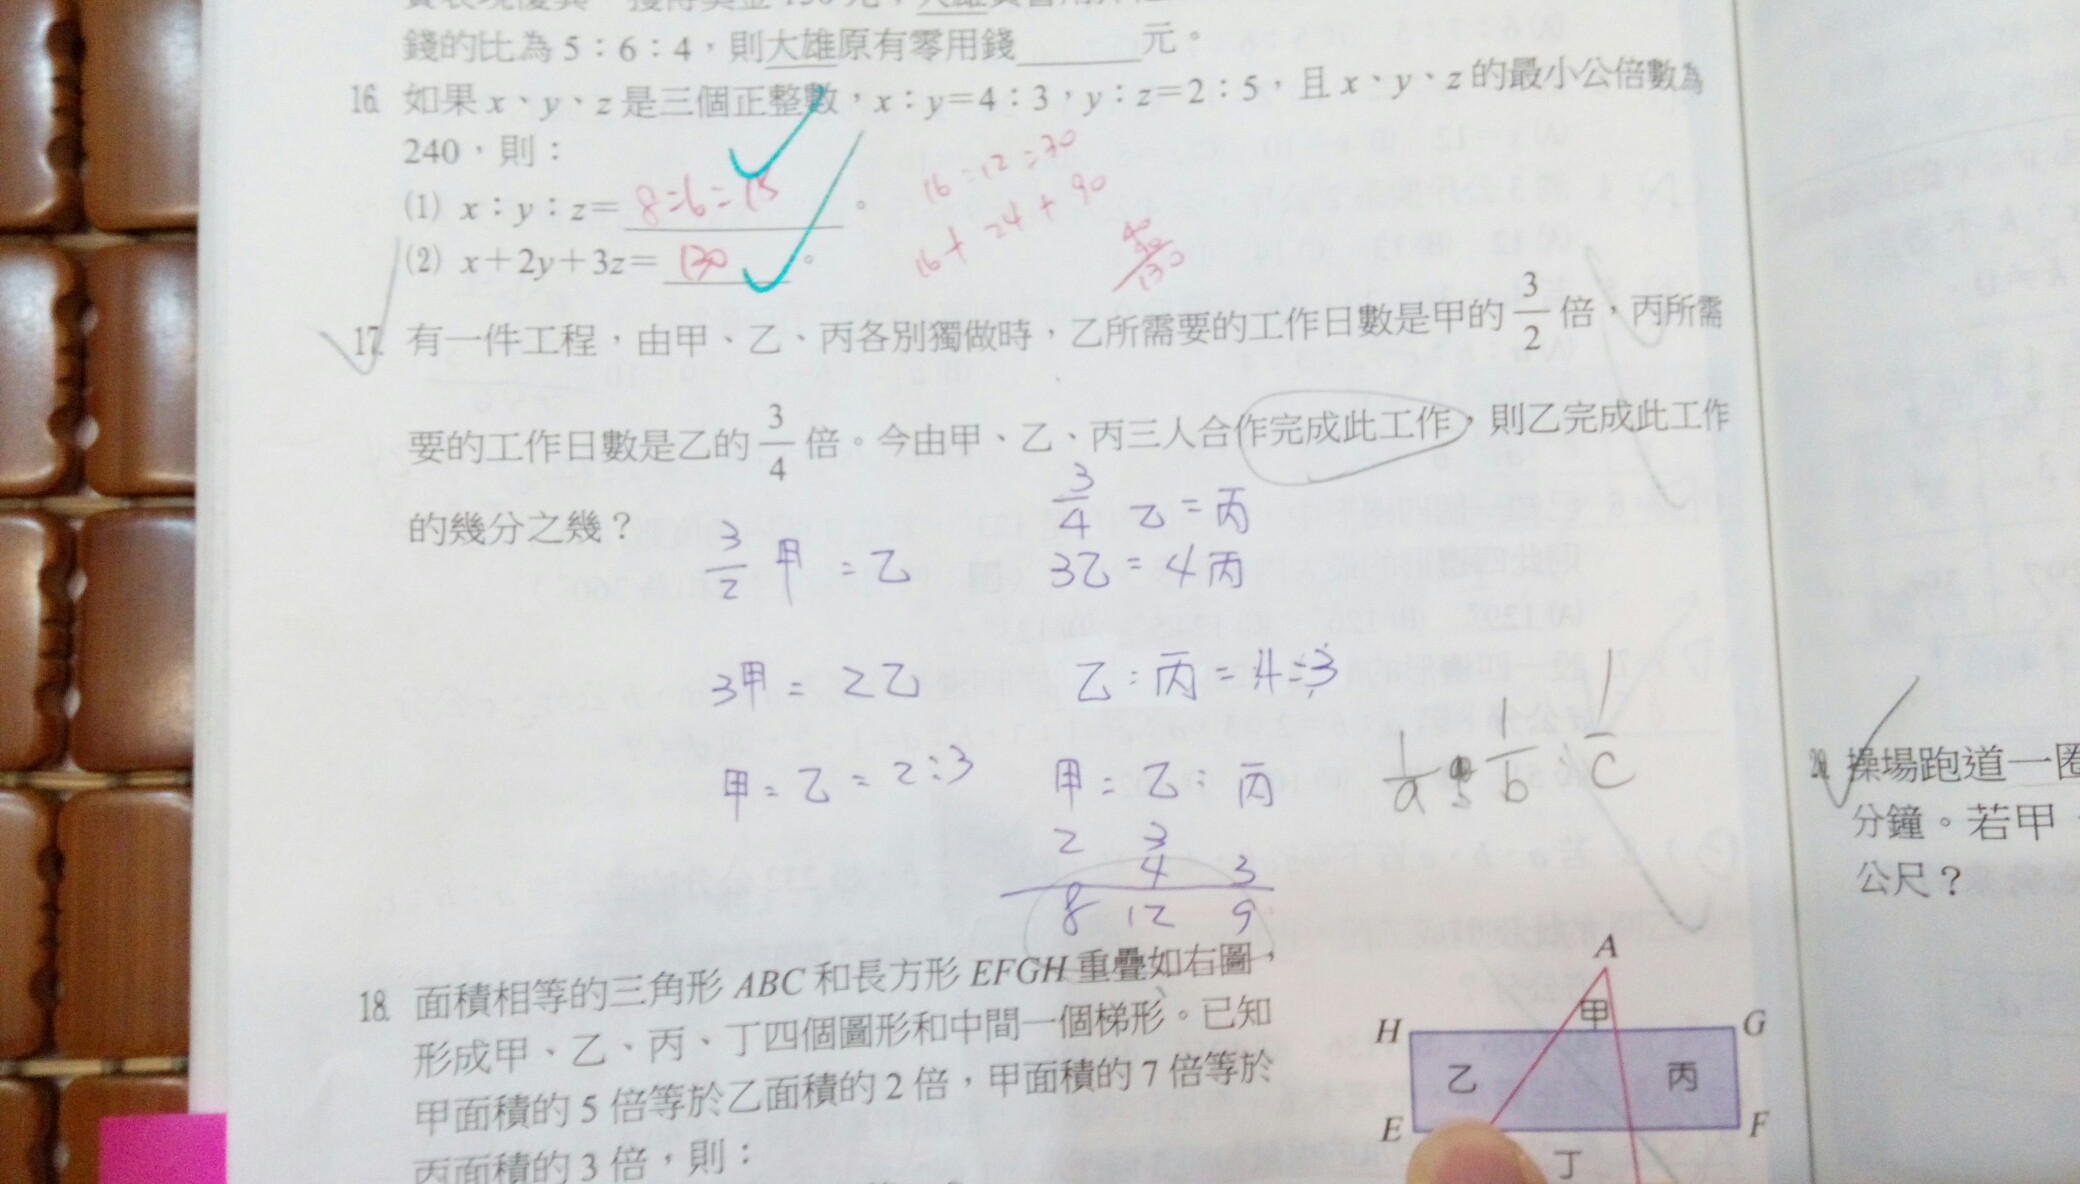 錢的比為 5：6：4，則大雄原有零用錢______元。
16. 如果 x、y、z 是三個正整數，x：y=4：3，y：z=2：5，且 x、y、z 的最小公倍數為
240，則：
(1) x：y：z= 8:6:15 。
(2) x+2y+3z= 130 。
16:12:30
16+ 24 + 90
40
90
130
17. 有一件工程，由甲、乙、丙各別獨做時，乙所需要的工作日數是甲的 3/2 倍，丙所需
要的工作日數是乙的 3/4 倍。今由甲、乙、丙三人合作完成此工作，則乙完成此工作
的幾分之幾？
3/2 甲 = 乙
3/4 乙 = 丙
3乙 = 4丙
3甲 = 2乙
乙：丙 = 4:3
甲：乙 = 2:3
甲：乙：丙
2 3
4 3
8 12 9
1/a : 1/b : 1/c
18. 面積相等的三角形 ABC 和長方形 EFGH 重疊如右圖，
形成甲、乙、丙、丁四個圖形和中間一個梯形。已知
甲面積的 5 倍等於乙面積的 2 倍，甲面積的 7 倍等於
丙面積的 3 倍，則：
A
甲
H
G
乙
丙
E
F
丁
操場跑道一圈
分鐘。若甲
公尺？